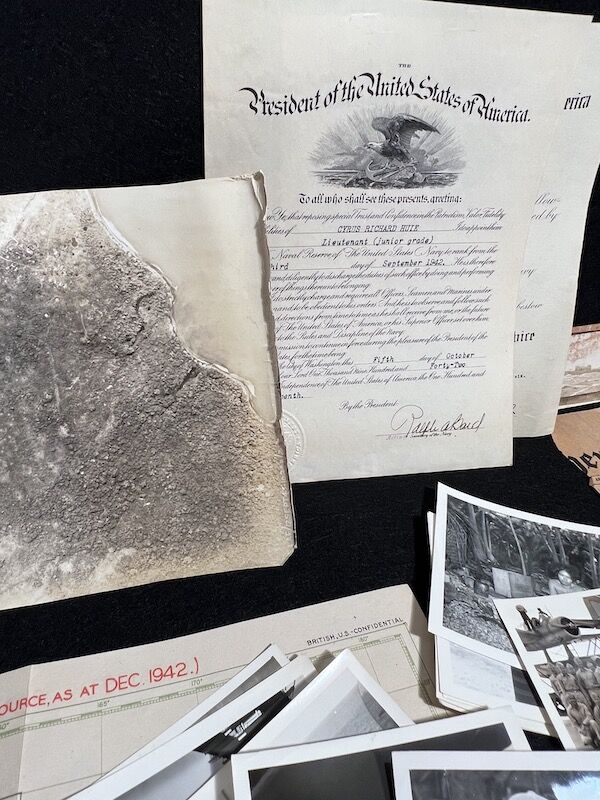 THE
President of the United States of America.
To all who shall see these presents, greeting:
Ye, that reposing special Trust and Confidence in the Patriotism, Valor, Fidelity
lities of CYRUS RICHARD HUIE I do appoint him
Lieutenant (junior grade)
Naval Reserve of The United States Navy to rank from the
hird day of September 1942. He is therefore
and diligently to discharge the duties of such office by doing and performing
r of things thereunto belonging.
do strictly charge and require all Officers, Seamen and Marines under
and to be obedient to his orders. And he is to observe and follow such
d directions from time to time as he shall receive from me, or the future
f The United States of America, or his Superior Officer set over him
to the Rules and Discipline of the Navy.
mission to continue in force during the pleasure of the President of the
ates for the time being.
ity of Washington this Fifth day of October
ur Lord One Thousand Nine Hundred and Forty-Two
ndependence of The United States of America, the One Hundred and
By the President:
Secretary of the Navy
erica
llow
d by
vy
bestow
vice
BRITISH, U.S.-CONFIDENTIAL
OURCE, AS AT DEC. 1942.)
165°
170°
180°